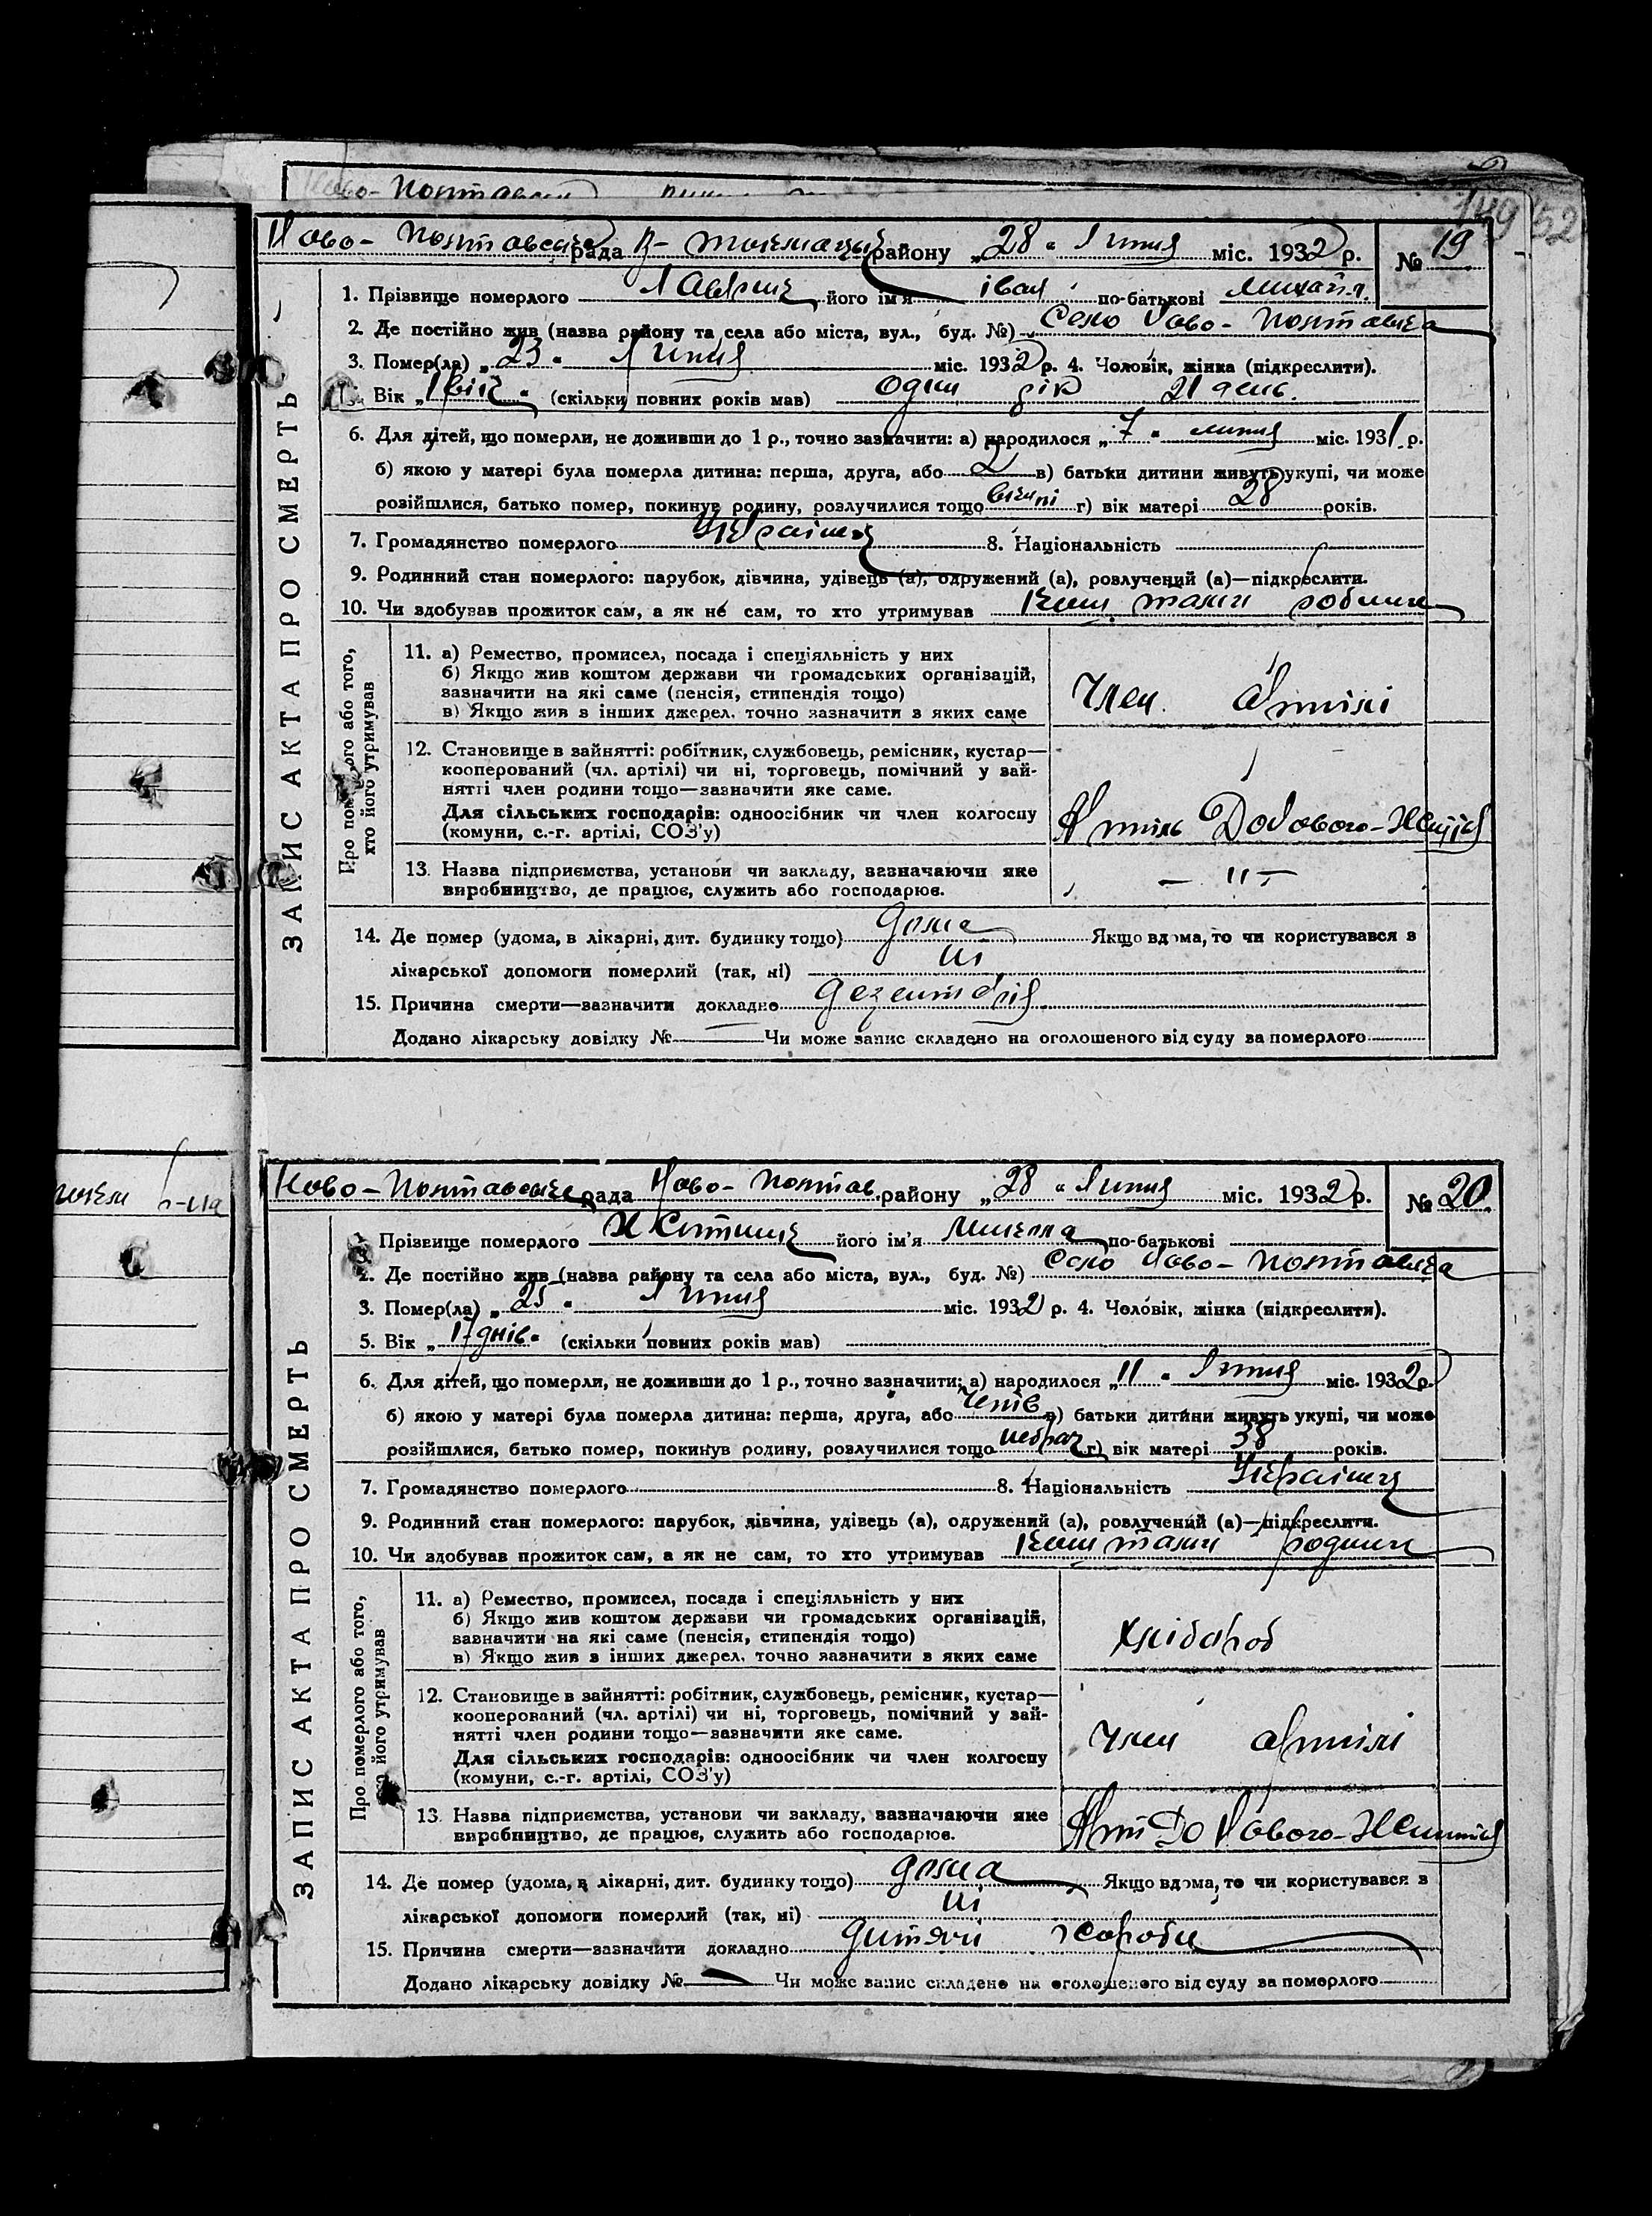 149 152
Ново-Полтавська рада В-Токмацьк району „28“ Липня міс. 1932 р. № 19
ЗАПИС АКТА ПРО СМЕРТЬ
1. Прізвище померлого його ім'я іван по-батькові Михайл.
2. Де постійно жив (назва району та села або міста, вул., буд. №) Село Ново-Полтавка
3. Помер(ла) „23“ Липня міс. 1932 р. 4. Чоловік, жінка (підкреслити).
Вік „1 рік“ (скільки повних років мав) Один рік 21 день.
6. Для дітей, що померли, не доживши до 1 р., точно зазначити: а) народилося „7“ липня міс. 1931 р.
б) якою у матері була померла дитина: перша, друга, або 2 в) батьки дитини живуть укупі, чи може
розійшлися, батько помер, покинув родину, розлучилися тощо г) вік матері 28 років.
7. Громадянство померлого Українец 8. Національність
9. Родинний стан померлого: парубок, дівчина, удівець (а), одружений (а), розлучений (а)—підкреслити.
10. Чи здобував прожиток сам, а як не сам, то хто утримував Коштами
Про померлого або того, хто його утримував
11. а) Ремество, промисел, посада і спеціяльність у них
б) Якщо жив коштом держави чи громадських організацій,
зазначити на які саме (пенсія, стипендія тощо)
в) Якщо жив з інших джерел, точно зазначити з яких саме
Член Артілі
12. Становище в зайнятті: робітник, службовець, ремісник, кустар—
кооперований (чл. артілі) чи ні, торговець, помічний у зай-
нятті член родини тощо—зазначити яке саме.
Для сільських господарів: одноосібник чи член колгоспу
(комуни, с.-г. артілі, СОЗ'у)
Артіль До Нового-Життя
13. Назва підприємства, установи чи закладу, зазначаючи яке
виробництво, де працює, служить або господарює.
— 〃 —
14. Де помер (удома, в лікарні, дит. будинку тощо) дома Якщо вдома, то чи користувався з
лікарської допомоги померлий (так, ні) ні
15. Причина смерти—зазначити докладно дезентерія
Додано лікарську довідку № — Чи може запис складено на оголошеного від суду за померлого
Ново-Полтавська рада Ново-Полтав. району „28“ Липня міс. 1932 р. № 20.
ЗАПИС АКТА ПРО СМЕРТЬ
Прізвище померлого його ім'я Микола по-батькові
2. Де постійно жив (назва району та села або міста, вул., буд. №) Село Ново-Полтавка
3. Помер(ла) „25“ Липня міс. 1932 р. 4. Чоловік, жінка (підкреслити).
5. Вік „17 днів“ (скільки повних років мав)
6. Для дітей, що померли, не доживши до 1 р., точно зазначити: а) народилося „11“ Липня міс. 1932 р.
б) якою у матері була померла дитина: перша, друга, або Четв в) батьки дитини живуть укупі, чи може
розійшлися, батько помер, покинув родину, розлучилися тощо г) вік матері 38 років.
7. Громадянство померлого 8. Національність Українец
9. Родинний стан померлого: парубок, дівчина, удівець (а), одружений (а), розлучений (а)—підкреслити.
10. Чи здобував прожиток сам, а як не сам, то хто утримував Коштами родини
Про померлого або того, хто його утримував
11. а) Ремество, промисел, посада і спеціяльність у них
б) Якщо жив коштом держави чи громадських організацій,
зазначити на які саме (пенсія, стипендія тощо)
в) Якщо жив з інших джерел, точно зазначити з яких саме
Хлібороб
12. Становище в зайнятті: робітник, службовець, ремісник, кустар—
кооперований (чл. артілі) чи ні, торговець, помічний у зай-
нятті член родини тощо—зазначити яке саме.
Для сільських господарів: одноосібник чи член колгоспу
(комуни, с.-г. артілі, СОЗ'у)
Член артілі
13. Назва підприємства, установи чи закладу, зазначаючи яке
виробництво, де працює, служить або господарює.
Арті До Нового-Життя
14. Де помер (удома, в лікарні, дит. будинку тощо) дома Якщо вдома, то чи користувався з
лікарської допомоги померлий (так, ні) ні
15. Причина смерти—зазначити докладно дитячі хороби
Додано лікарську довідку № — Чи може запис складено на оголошеного від суду за померлого